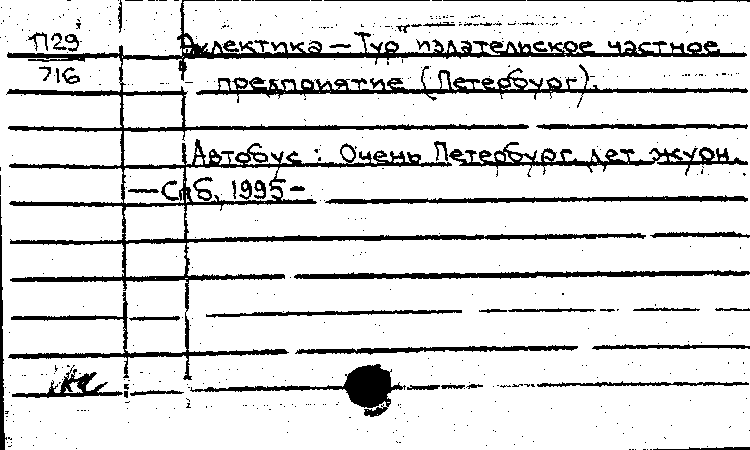 П29
716
Эклектика – Тур" издательское частное
предприятие (Петербург).
Автобус : Очень Петербург. дет. журн.
— Спб, 1995 -